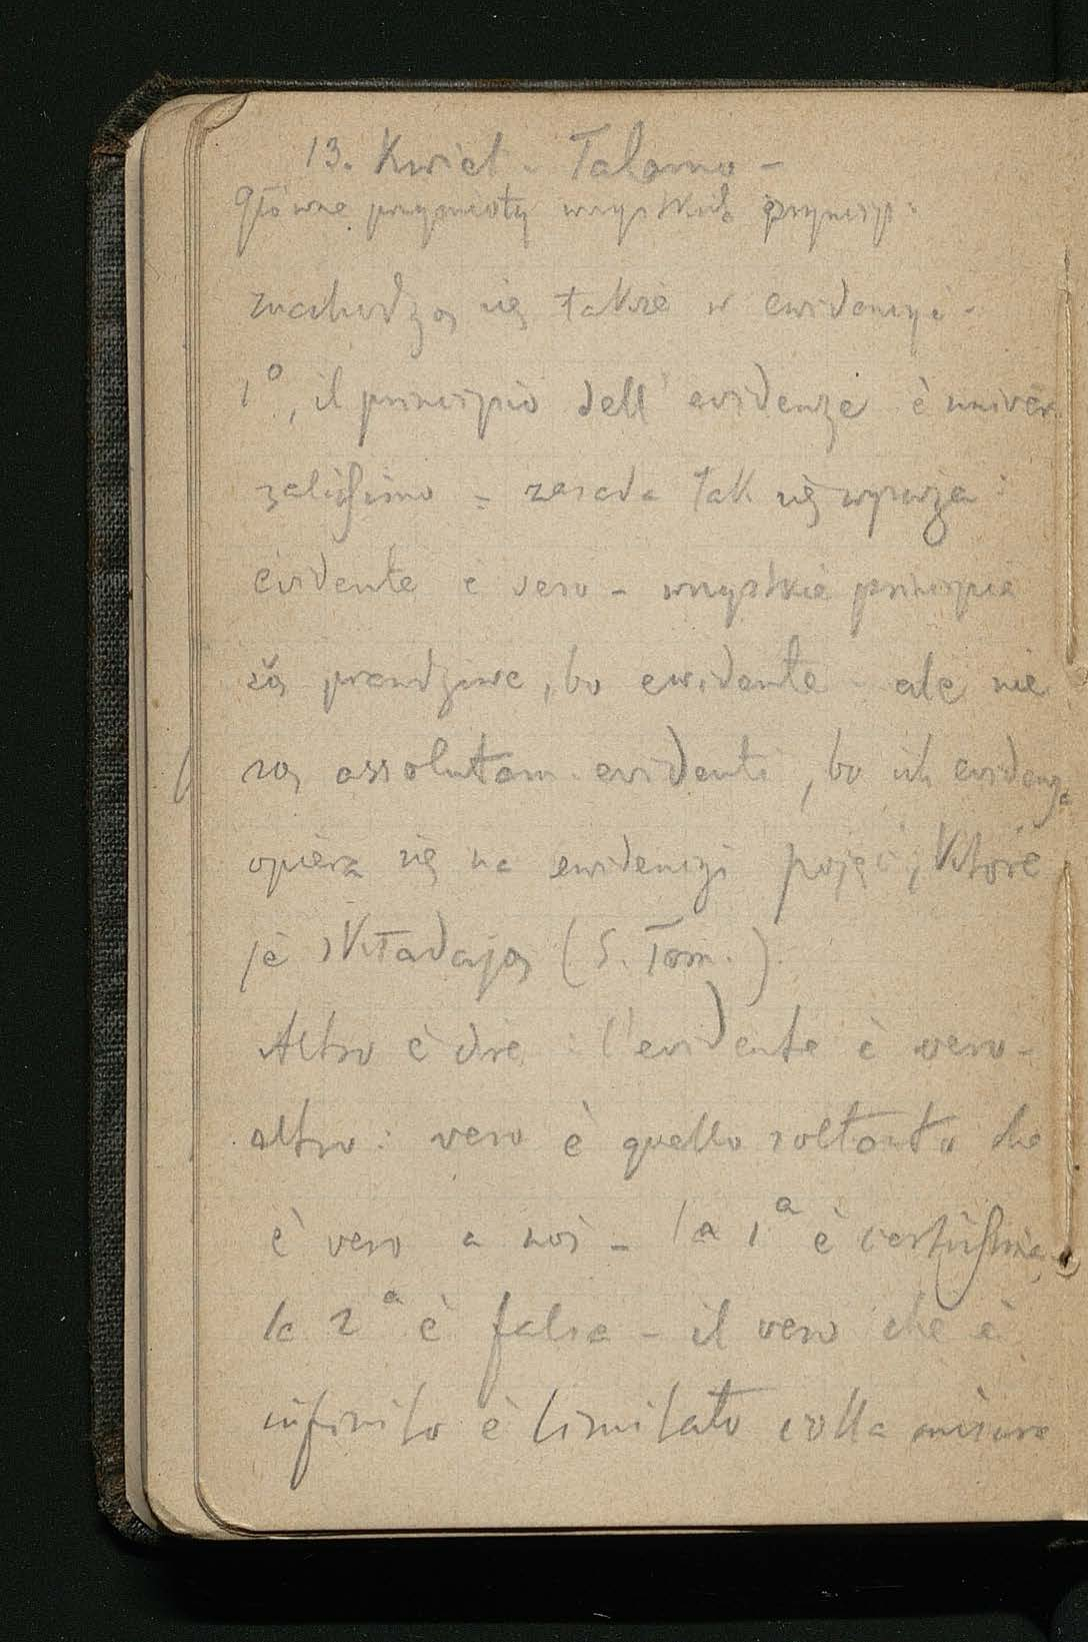 13. Kwiet - Talamo -
Główne przymioty wszystkich pryncyp:
znachodzą się także w ewidencyi -
1°, il principio dell' evidenza è univer
salissimo - zasada tak się wyraża:
evidente è vero - wszystkie principia
są prawdziwe, bo evidente - ale nie
są assolutam. evidenti, bo ich evidenza
opiera się na ewidencyi pojęć, które
je składają (S. Tom.)
Altro è dire: l'evidente è vero -
altro: vero è quello soltanto che
è vero a noi - la 1ª è certissima
la 2ª è falsa - il vero che è
infinito è limitato colla misura